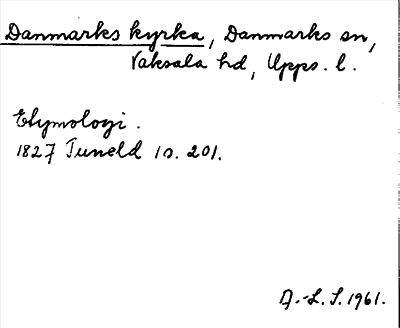 Danmarks kyrka, Danmarks sn,
Vaksala hd, Upps. l.
Etymologi.
1827 Tuneld 10. 201.
A.-L. S. 1961.